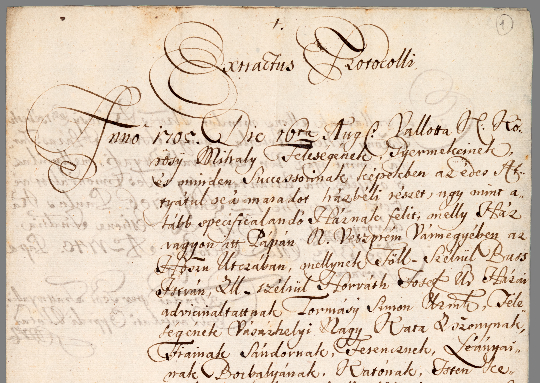 1.
Extractus Protocolli
Anno 1702. Die 16ta Aug. Vallotta N. Kö-
rösy Mihaly Feleségenek, Gyermekeinek,
és minden Successorinak képekben az édes At-
tyátul reá maradot házbéli részét, ugy mint a-
lább specificalandó Háznak felit, melly Ház
vagyon itt Pápán N. Veszprém Vármegyében az
Hoszu Utczában, mellynek Föll-Szélrül Bacs
István, All-szélrül Horváth Josef Ur Házai
advicináltattnak Tormásy Simon Uramk, Fele-
ségenek Vásárhelyi Nagy Kata Aszonynak,
Fiainak Sándornak, Ferencznek, Leányai-
nak Borbalyának, Katónak, Isten ke-